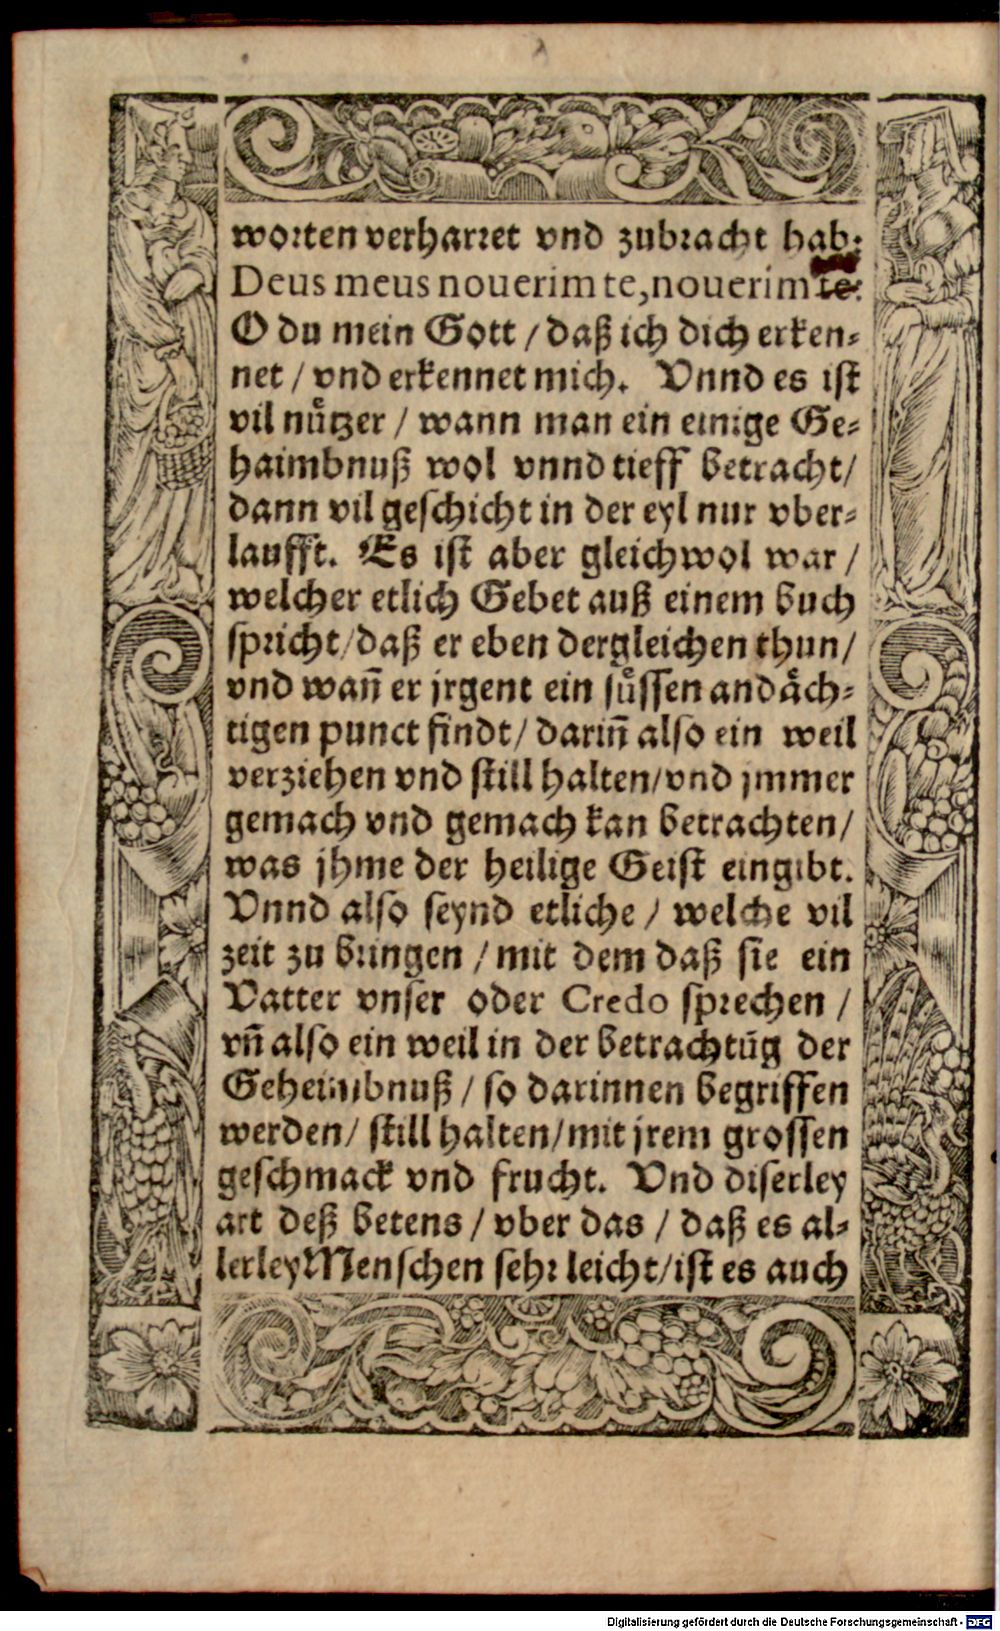 worten verharret vnd zubracht hab:
Deus meus nouerim te, nouerim te:
O du mein Gott / daß ich dich erken⸗
net / vnd erkennet mich. Vnnd es ist
vil nuͤtzer / wann man ein einige Ge⸗
haimbnuß wol vnnd tieff betracht/
dann vil geschicht in der eyl nur vber⸗
laufft. Es ist aber gleichwol war /
welcher etlich Gebet auß einem buch
spricht/daß er eben dergleichen thun/
vnd wañ er jrgent ein suͤssen andaͤch⸗
tigen punct findt/ dariñ also ein weil
verziehen vnd still halten/vnd jmmer
gemach vnd gemach kan betrachten/
was jhme der heilige Geist eingibt.
Vnnd also seynd etliche / welche vil
zeit zu bringen / mit dem daß sie ein
Vatter vnser oder Credo sprechen /
vñ also ein weil in der betrachtũg der
Geheimbnuß / so darinnen begriffen
werden/ still halten/mit jrem grossen
geschmack vnd frucht. Vnd diserley
art deß betens / vber das / daß es al⸗
lerley Menschen sehr leicht/ist es auch
Digitalisierung gefördert durch die Deutsche Forschungsgemeinschaft - DFG